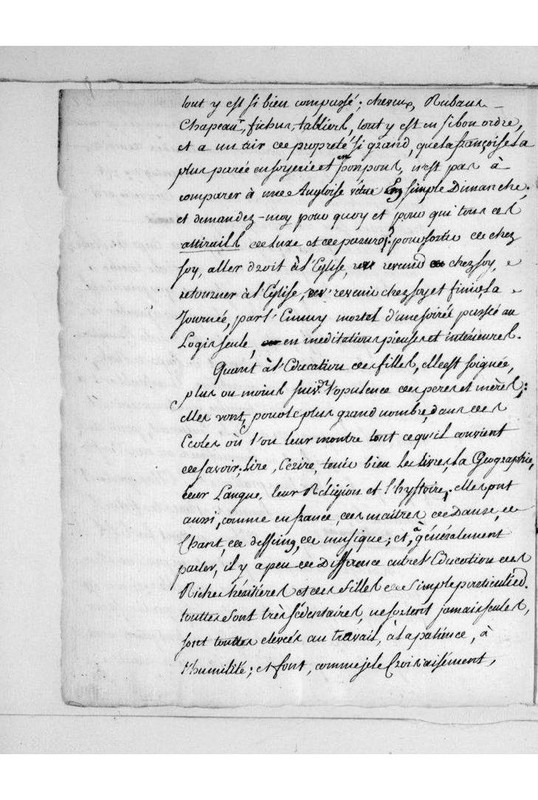 tout y est si bien composé; cheveux, Rubans
Chapeaux, fichus, tabliers, tout y est en si bon ordre,
et a un air de propreté si grand, que la françoise la
plus parée en soyerie et en ponpons, n'est pas à
comparer à une Angloise vêtue en simple Dimanche.
et demandez-moy pour quoy et pour qui tous ces
attirails de luxe et de parure? pour sortir de chez
soy, aller droit à l'Eglise, revenir chez soy, &
retourner à l'Eglise, revenir chez soy et finir la
Journée, par l'Ennuy mortel d'une soirée passée au
Logis seule, en meditations pieuses et intérieures.
Quant à l'Education des filles, elle est soignée,
plus ou moins suivt. l'opulence des peres et mères;
elles vont, pour le plus grand nombre, dans des
Ecoles où l'on leur montre tout ce qu'il convient
de savoir. lire, Ecrire, tenir bien les livres la Geographie,
leur Langue, leur Réligion et l'hystoire. elles ont
aussi, comme en france, des maitres de Danse, de
Chant de dessing, de musique; et, à généralement
parler, il y a peu de Difference entre l'Education des
Riches héritieres et des filles de simple particulier.
touttes sont très sédentaires, ne sortent jamais seules,
sont touttes elevées au travail, à la patience, à
l'humilité; et font, comme je le Crois aisément,